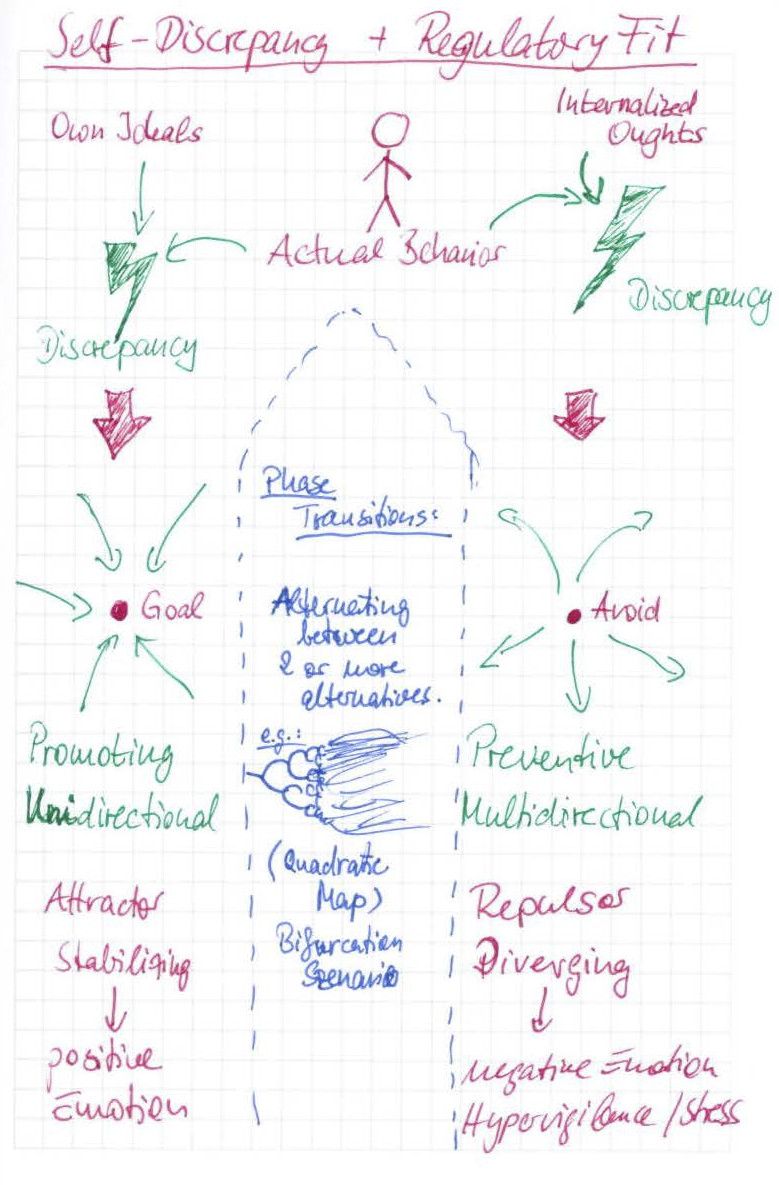 Self-Discrepancy + Regulatory Fit
Own Ideals
Internalized
Oughts
Actual Behavior
Discrepancy
Discrepancy
Phase
Transitions:
Goal
Alternating
between
2 or more
alternatives.
Avoid
Promoting
Unidirectional
e.g.:
Preventive
Multidirectional
(Quadratic
Map)
Bifurcation
Szenario
Attractor
Stabilizing
positive
Emotion
Repulsor
Diverging
negative Emotion
Hypervigilance / Stress